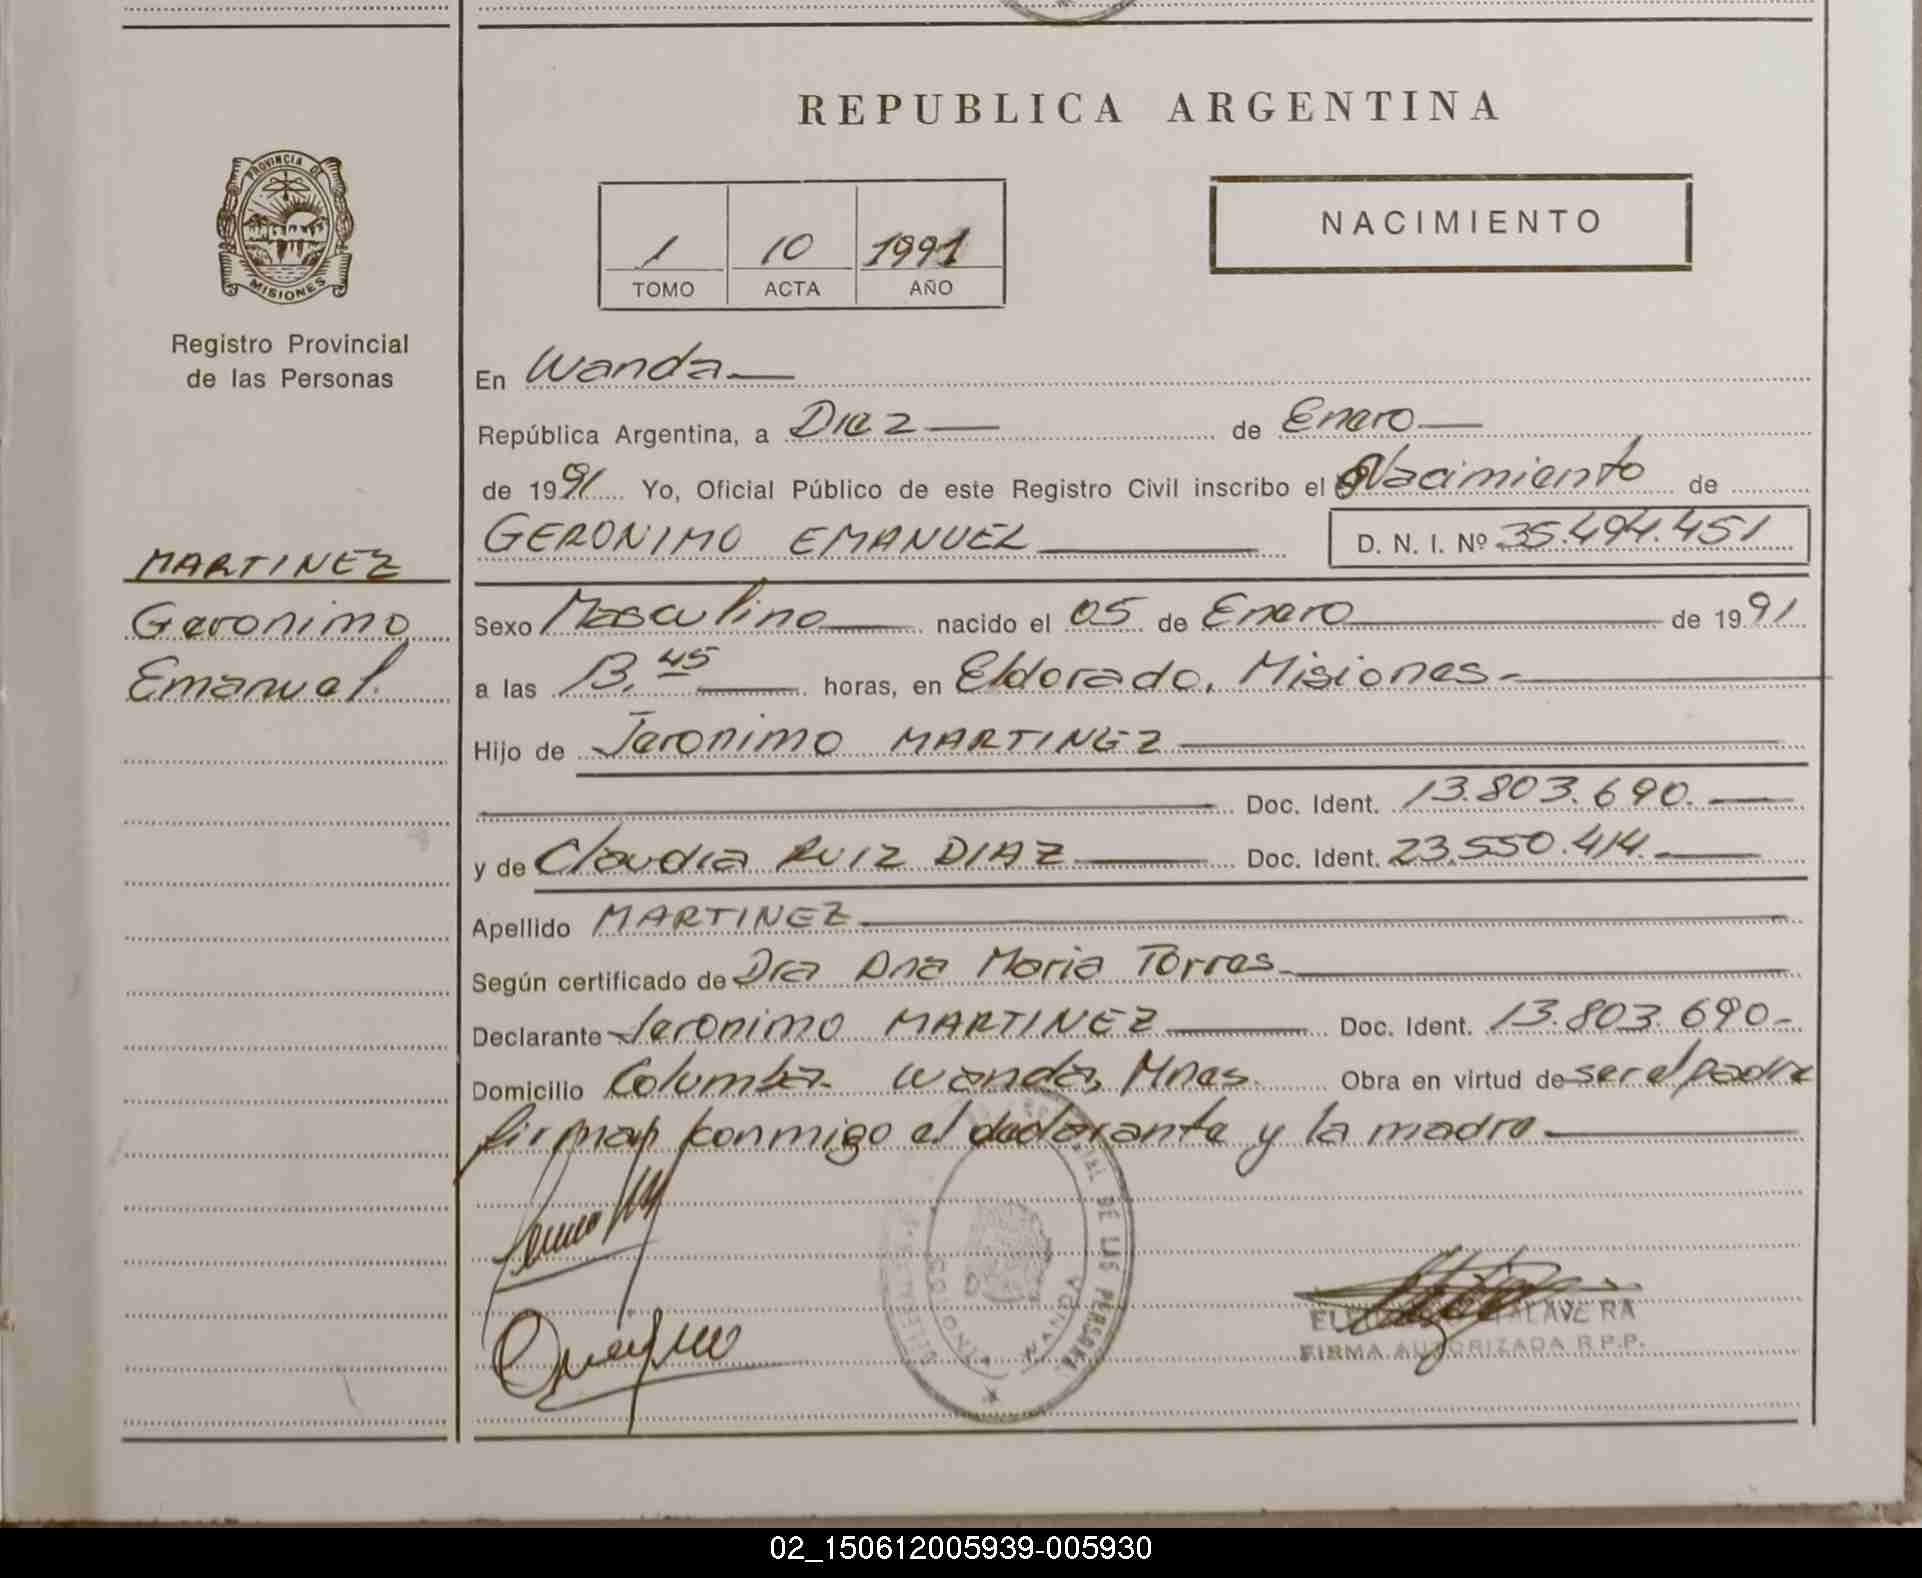 REPUBLICA ARGENTINA
PROVINCIA DE
MISIONES
Registro Provincial
de las Personas
1 10 1991
TOMO ACTA AÑO
NACIMIENTO
En Wanda
República Argentina, a Diez de Enero
de 1991 Yo, Oficial Público de este Registro Civil inscribo el Nacimiento de
GERONIMO EMANUEL D. N. I. Nº 35.494.451
MARTINEZ
Geronimo
Emanuel.
Sexo Masculino nacido el 05 de Enero de 1991
a las 13,45 horas, en Eldorado, Misiones
Hijo de Jeronimo MARTINEZ
Doc. Ident. 13.803.690.
y de Claudia RUIZ DIAZ Doc. Ident. 23.550.414.
Apellido MARTINEZ
Según certificado de Dra Ana Maria Torres
Declarante Jeronimo MARTINEZ Doc. Ident. 13.803.690
Domicilio Columba Wanda, Mnes. Obra en virtud de ser el padre
firman conmigo el declarante y la madre
DE LAS PERSONAS
WANDA
TALAVERA
FIRMA AUTORIZADA R.P.P.
02_150612005939-005930